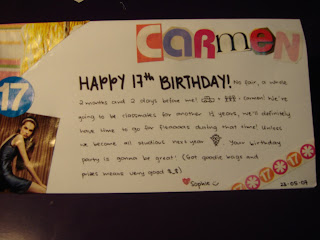 CARMEN
HAPPY 17th BIRTHDAY! No fair, a whole
2 months and 2 days before me! = Carmen! We're
going to be classmates for another 1½ years, we'll definitely
have time to go for Fisherees during that time! Unless
we become all studious next year. Your birthday
party is gonna be great! (Got goodie bags and
prizes means very good)
Sophie
17
17 17
28.05.09